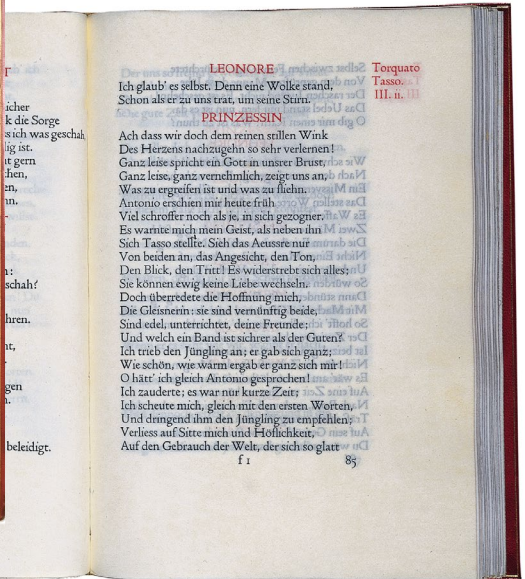 T
icher
k die Sorge
s ich was geschah,
lig ist.
t gern
chen,
en,
n.
n:
schah?
hren.
nt,
gen
n.
beleidigt.
LEONORE
Ich glaub' es selbst. Denn eine Wolke stand,
Schon als er zu uns trat, um seine Stirn.
PRINZESSIN
Ach dass wir doch dem reinen stillen Wink
Des Herzens nachzugehn so sehr verlernen!
Ganz leise spricht ein Gott in unsrer Brust,
Ganz leise, ganz vernehmlich, zeigt uns an,
Was zu ergreifen ist und was zu fliehn.
Antonio erschien mir heute früh
Viel schroffer noch als je, in sich gezogner.
Es warnte mich mein Geist, als neben ihn
Sich Tasso stellte. Sieh das Aeussre nur
Von beiden an, das Angesicht, den Ton,
Den Blick, den Tritt! Es widerstrebt sich alles;
Sie können ewig keine Liebe wechseln.
Doch überredete die Hoffnung mich,
Die Gleisnerin: sie sind vernünftig beide,
Sind edel, unterrichtet, deine Freunde;
Und welch ein Band ist sichrer als der Guten?
Ich trieb den Jüngling an; er gab sich ganz;
Wie schön, wie warm ergab er ganz sich mir!
O hätt' ich gleich Antonio gesprochen!
Ich zauderte; es war nur kurze Zeit;
Ich scheute mich, gleich mit den ersten Worten,
Und dringend ihm den Jüngling zu empfehlen;
Verliess auf Sitte mich und Höflichkeit,
Auf den Gebrauch der Welt, der sich so glatt
f 1
85
Torquato
Tasso.
III. ii.